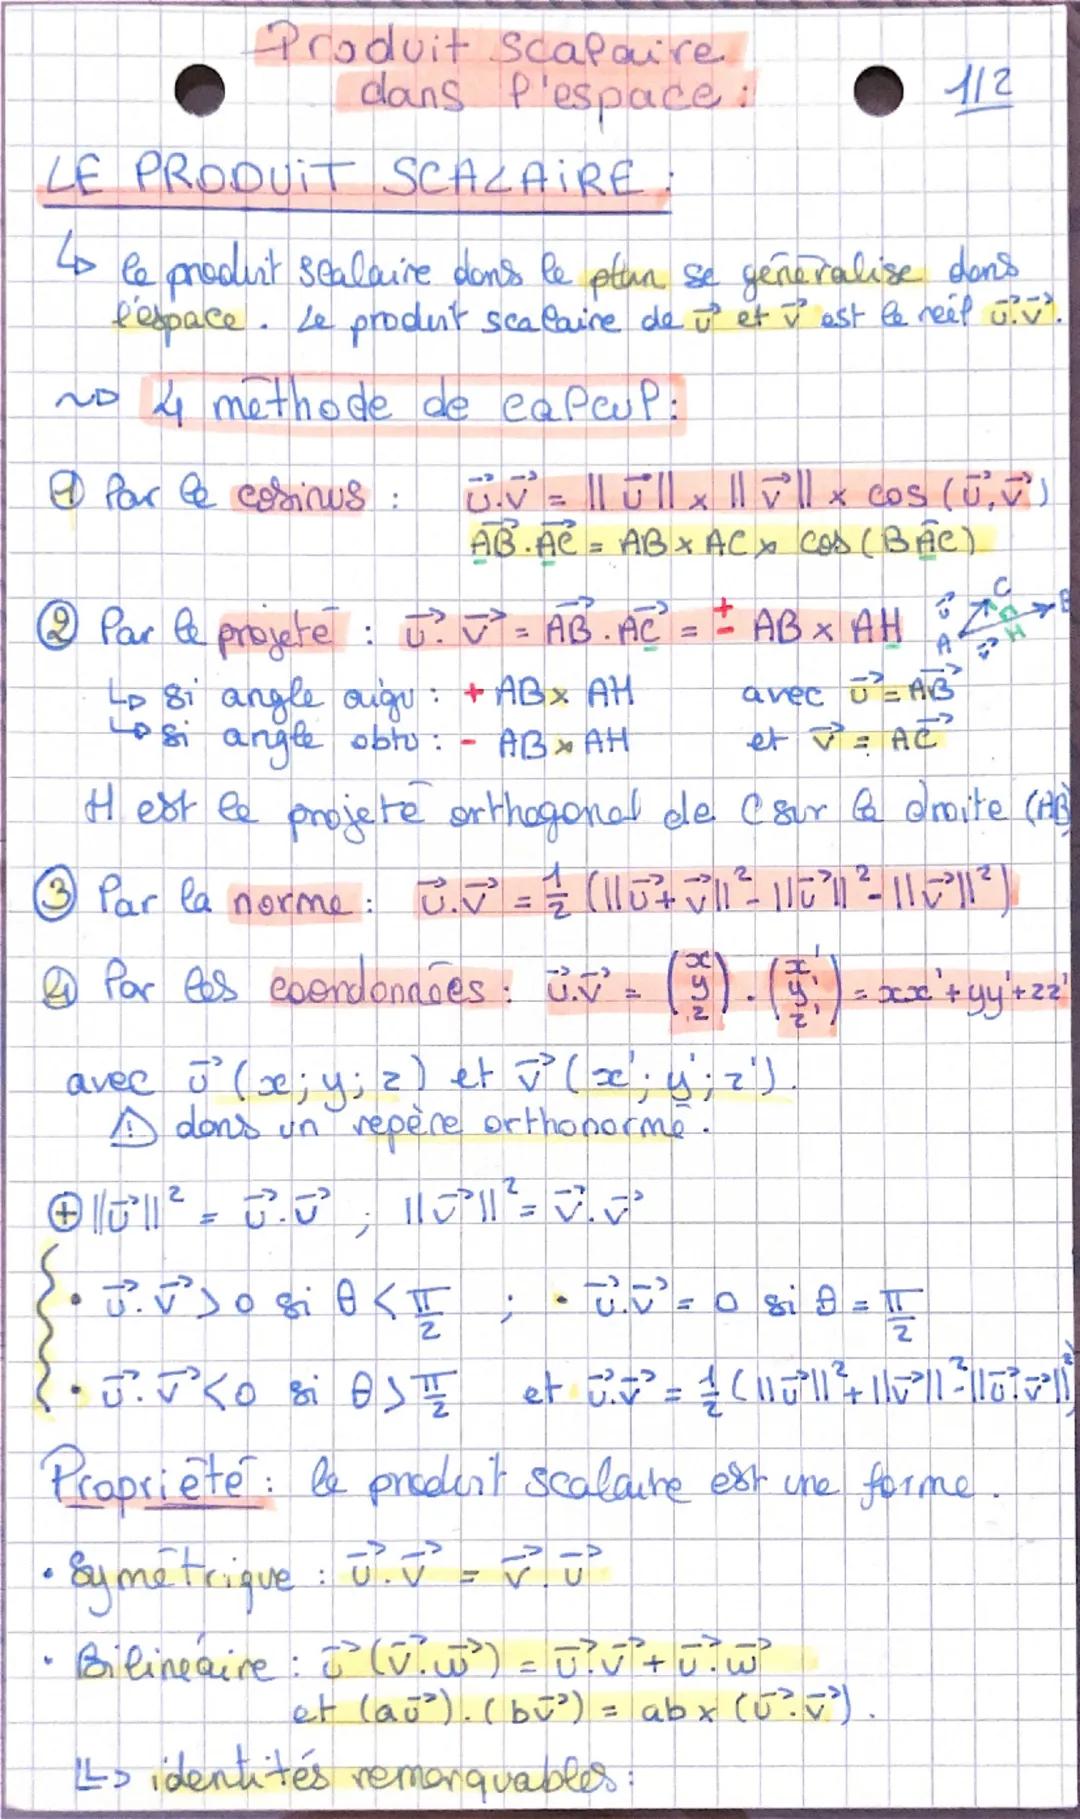 Produit scalaire
dans l'espace :
1/2
LE PRODUIT SCALAIRE :
↳ le produit scalaire dans le plan se généralise dans
l'espace. Le produit scalaire de u⃗ et v⃗ est le réel u⃗.v⃗.
~> 4 méthode de calcul :
① Par le cosinus : u⃗.v⃗ = ||u⃗|| x ||v⃗|| x cos (u⃗,v⃗)
AB⃗.AC⃗ = AB x AC x cos (BÂC)
② Par le projeté : u⃗.v⃗ = AB⃗.AC⃗ = ± AB x AH
u⃗ C B A H v⃗
↳ si angle aigu : + AB x AH avec u⃗ = AB⃗
↳ si angle obtu : - AB x AH et v⃗ = AC⃗
H est le projeté orthogonal de C sur la droite (AB)
③ Par la norme : u⃗.v⃗ = 1/2 (||u⃗+v⃗||² - ||u⃗||² - ||v⃗||²)
④ Par les coordonnées : u⃗.v⃗ = (x y z) . (x' y' z') = xx'+yy'+zz'
avec u⃗ (x; y; z) et v⃗ (x'; y'; z').
⚠ dans un repère orthonormé.
⊕ ||u⃗||² = u⃗.u⃗ ; ||v⃗||² = v⃗.v⃗
• u⃗.v⃗ > 0 si θ < π/2 ; • u⃗.v⃗ = 0 si θ = π/2
• u⃗.v⃗ < 0 si θ > π/2 et u⃗.v⃗ = 1/2 (||u⃗||² + ||v⃗||² - ||u⃗.v⃗||²)
Propriété : le produit scalaire est une forme.
• Symétrique : u⃗.v⃗ = v⃗.u⃗
• Bilinéaire : u⃗ (v⃗.w⃗) = u⃗.v⃗ + u⃗.w⃗
et (au⃗).(bv⃗) = ab x (u⃗.v⃗).
↳ identités remarquables :